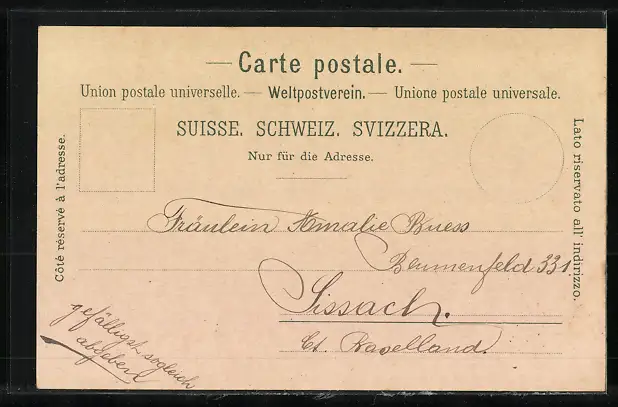 — Carte postale. —
Union postale universelle. — Weltpostverein. — Unione postale universale.
SUISSE. SCHWEIZ. SVIZZERA.
Nur für die Adresse.
Côté réservé à l'adresse.
Lato riservato all' indirizzo.
Fräulein Amalie Buess
Beumenfeld 331
Sissach.
Ct. Baselland.
gefälligst sogleich
abgeben